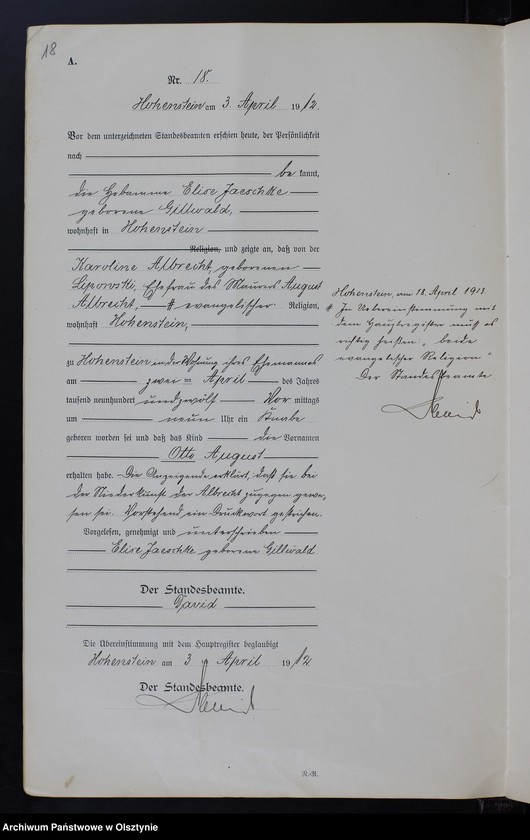 18
A.
Nr. 18.
Hohenstein am 3. April 1912.
Vor dem unterzeichneten Standesbeamten erschien heute, der Persönlichkeit
nach
be kannt,
die Hebamme Elise Jaeschke
geborene Gillwald,
wohnhaft in Hohenstein
Religion, und zeigte an, daß von der
Karoline Albrecht, geborenen
Lipowski, Ehefrau des Maurers August
Albrecht, # evangelischer Religion,
wohnhaft Hohenstein,
zu Hohenstein in der Wohnung ihres Ehemannes
am zwei = April des Jahres
tausend neunhundert und zwölf Vor mittags
um neun Uhr ein Knabe
geboren worden sei und daß das Kind die Vornamen
Otto August
erhalten habe. Die Anzeigende erklärt, daß sie bei
der Niederkunft der Albrecht zugegen gewe-
sen sei. Vorstehend ein Druckwort gestrichen.
Vorgelesen, genehmigt und unterschrieben
Elise Jaeschke geborene Gillwald.
Der Standesbeamte.
David
Die Übereinstimmung mit dem Hauptregister beglaubigt
Hohenstein am 3 April 1912
Der Standesbeamte.
Hohenstein, am 18. April 1913
# In Uebereinstimmung mit
dem Hauptregister muß es
richtig heißen „beide
evangelischer Religion"
Der Standesbeamte
R.-A.
Archiwum Państwowe w Olsztynie